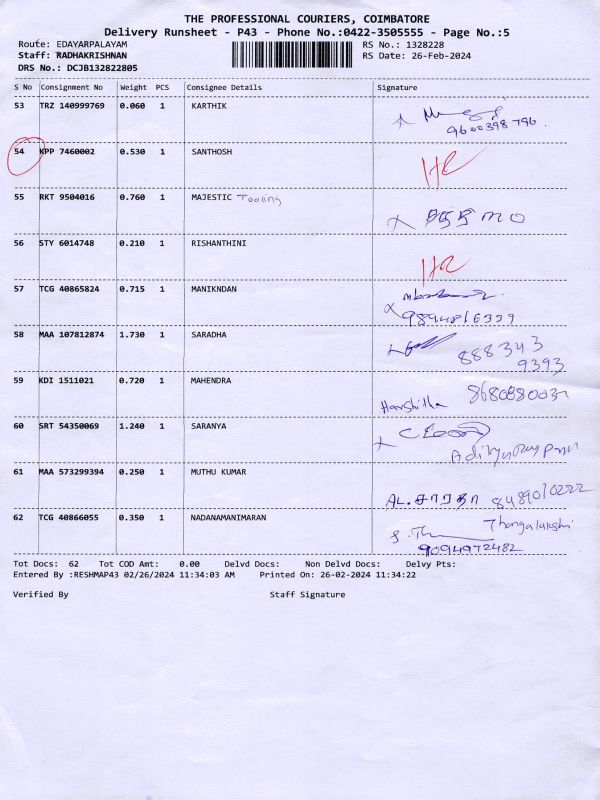 THE PROFESSIONAL COURIERS, COIMBATORE
Delivery Runsheet - P43 - Phone No.:0422-3505555 - Page No.:5
Route: EDAYARPALAYAM RS No.: 1328228
Staff: RADHAKRISHNAN RS Date: 26-Feb-2024
DRS No.: DCJB132822805
S No Consignment No Weight PCS Consignee Details Signature
53 TRZ 140999769 0.060 1 KARTHIK
9600398796
54 KPP 7460002 0.530 1 SANTHOSH
55 RKT 9504016 0.760 1 MAJESTIC Tooling
56 STY 6014748 0.210 1 RISHANTHINI
57 TCG 40865824 0.715 1 MANIKNDAN
9894816339
58 MAA 107812874 1.730 1 SARADHA
888343
9393
59 KDI 1511021 0.720 1 MAHENDRA
Harshitha
60 SRT 54350069 1.240 1 SARANYA
61 MAA 573299394 0.250 1 MUTHU KUMAR
AL. சாரதா 8489010222
62 TCG 40866055 0.350 1 NADANAMANIMARAN
9094972482
Tot Docs: 62 Tot COD Amt: 0.00 Delvd Docs: Non Delvd Docs: Delvy Pts:
Entered By :RESHMAP43 02/26/2024 11:34:03 AM Printed On: 26-02-2024 11:34:22
Verified By Staff Signature